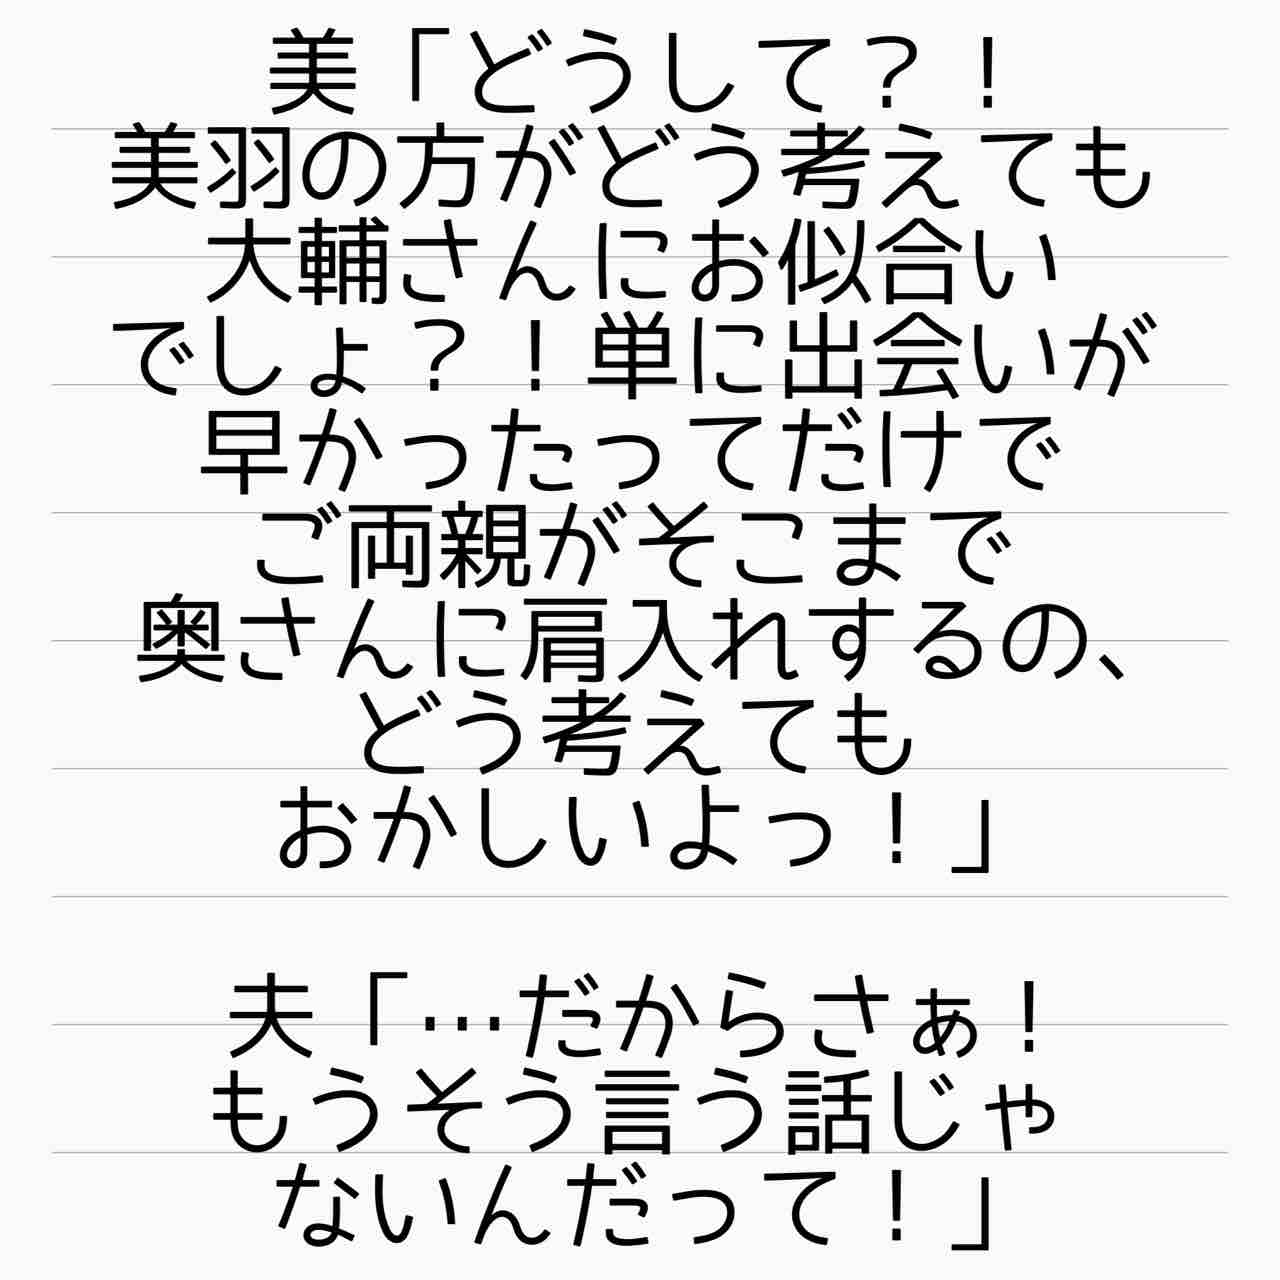 美「どうして？！
美羽の方がどう考えても
大輔さんにお似合い
でしょ？！単に出会いが
早かったってだけで
ご両親がそこまで
奥さんに肩入れするの、
どう考えても
おかしいよっ！」
夫「…だからさぁ！
もうそう言う話じゃ
ないんだって！」